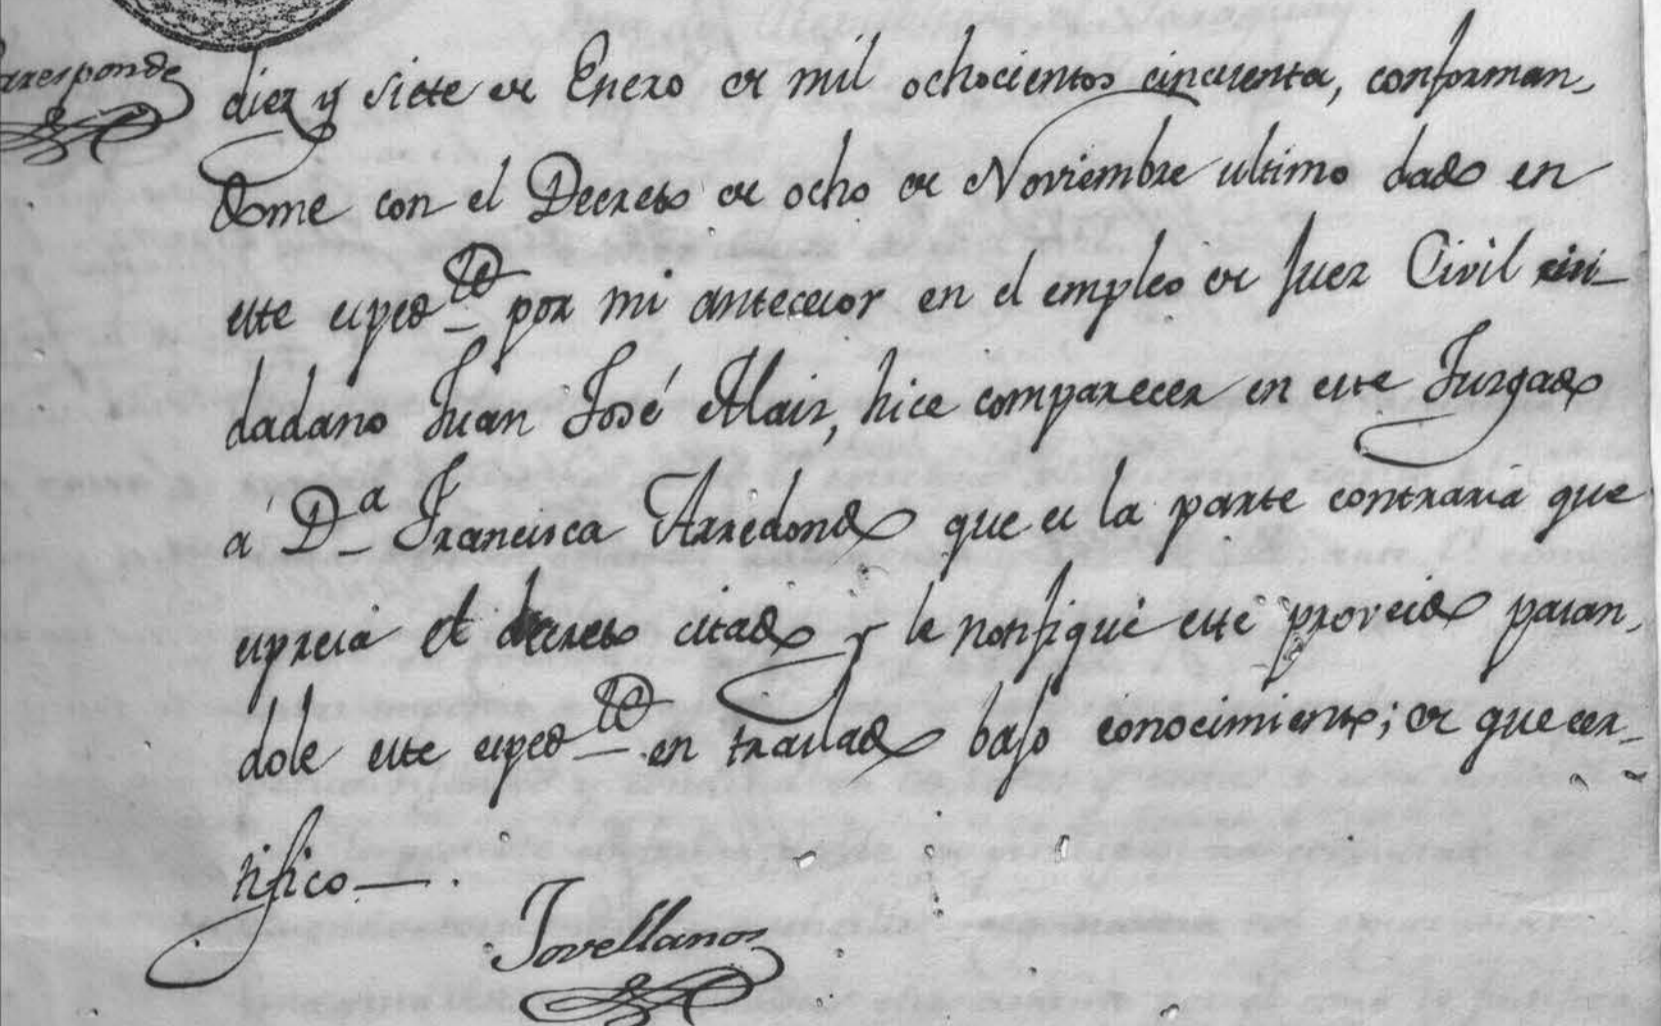 Corresponde
diez y siete de Enero de mil ochocientos cincuenta, conforman-
dome con el Decreto de ocho de Noviembre ultimo dado en
este exped.te por mi antecesor en el empleo de Juez Civil ciu-
dadano Juan José Alais, hice comparecer en este Juzgado
á D.a Francisca Arredondo que es la parte contraria que
espresa el decreto citado y le notifiqué este proveido pasan-
dole este exped.te en traslado bajo conocimiento; de que cer-
tifico—.
Jovellanos